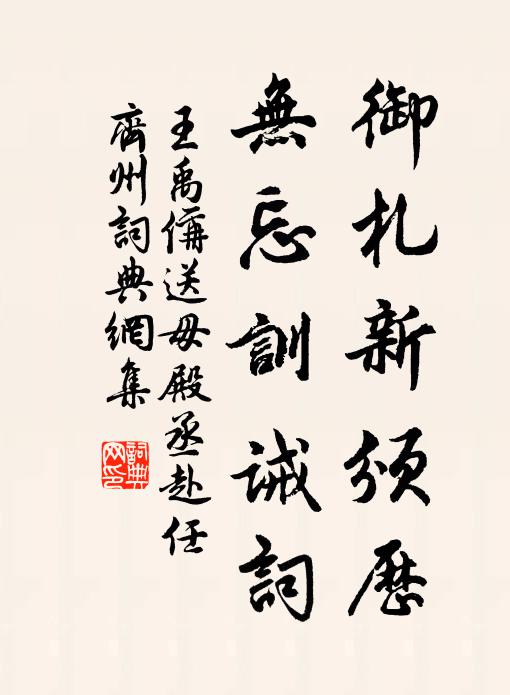 御札新頒歷
無忘訓誡詞
王禹偁送毋殿丞赴任
齊州詞典網集
詞典
网印